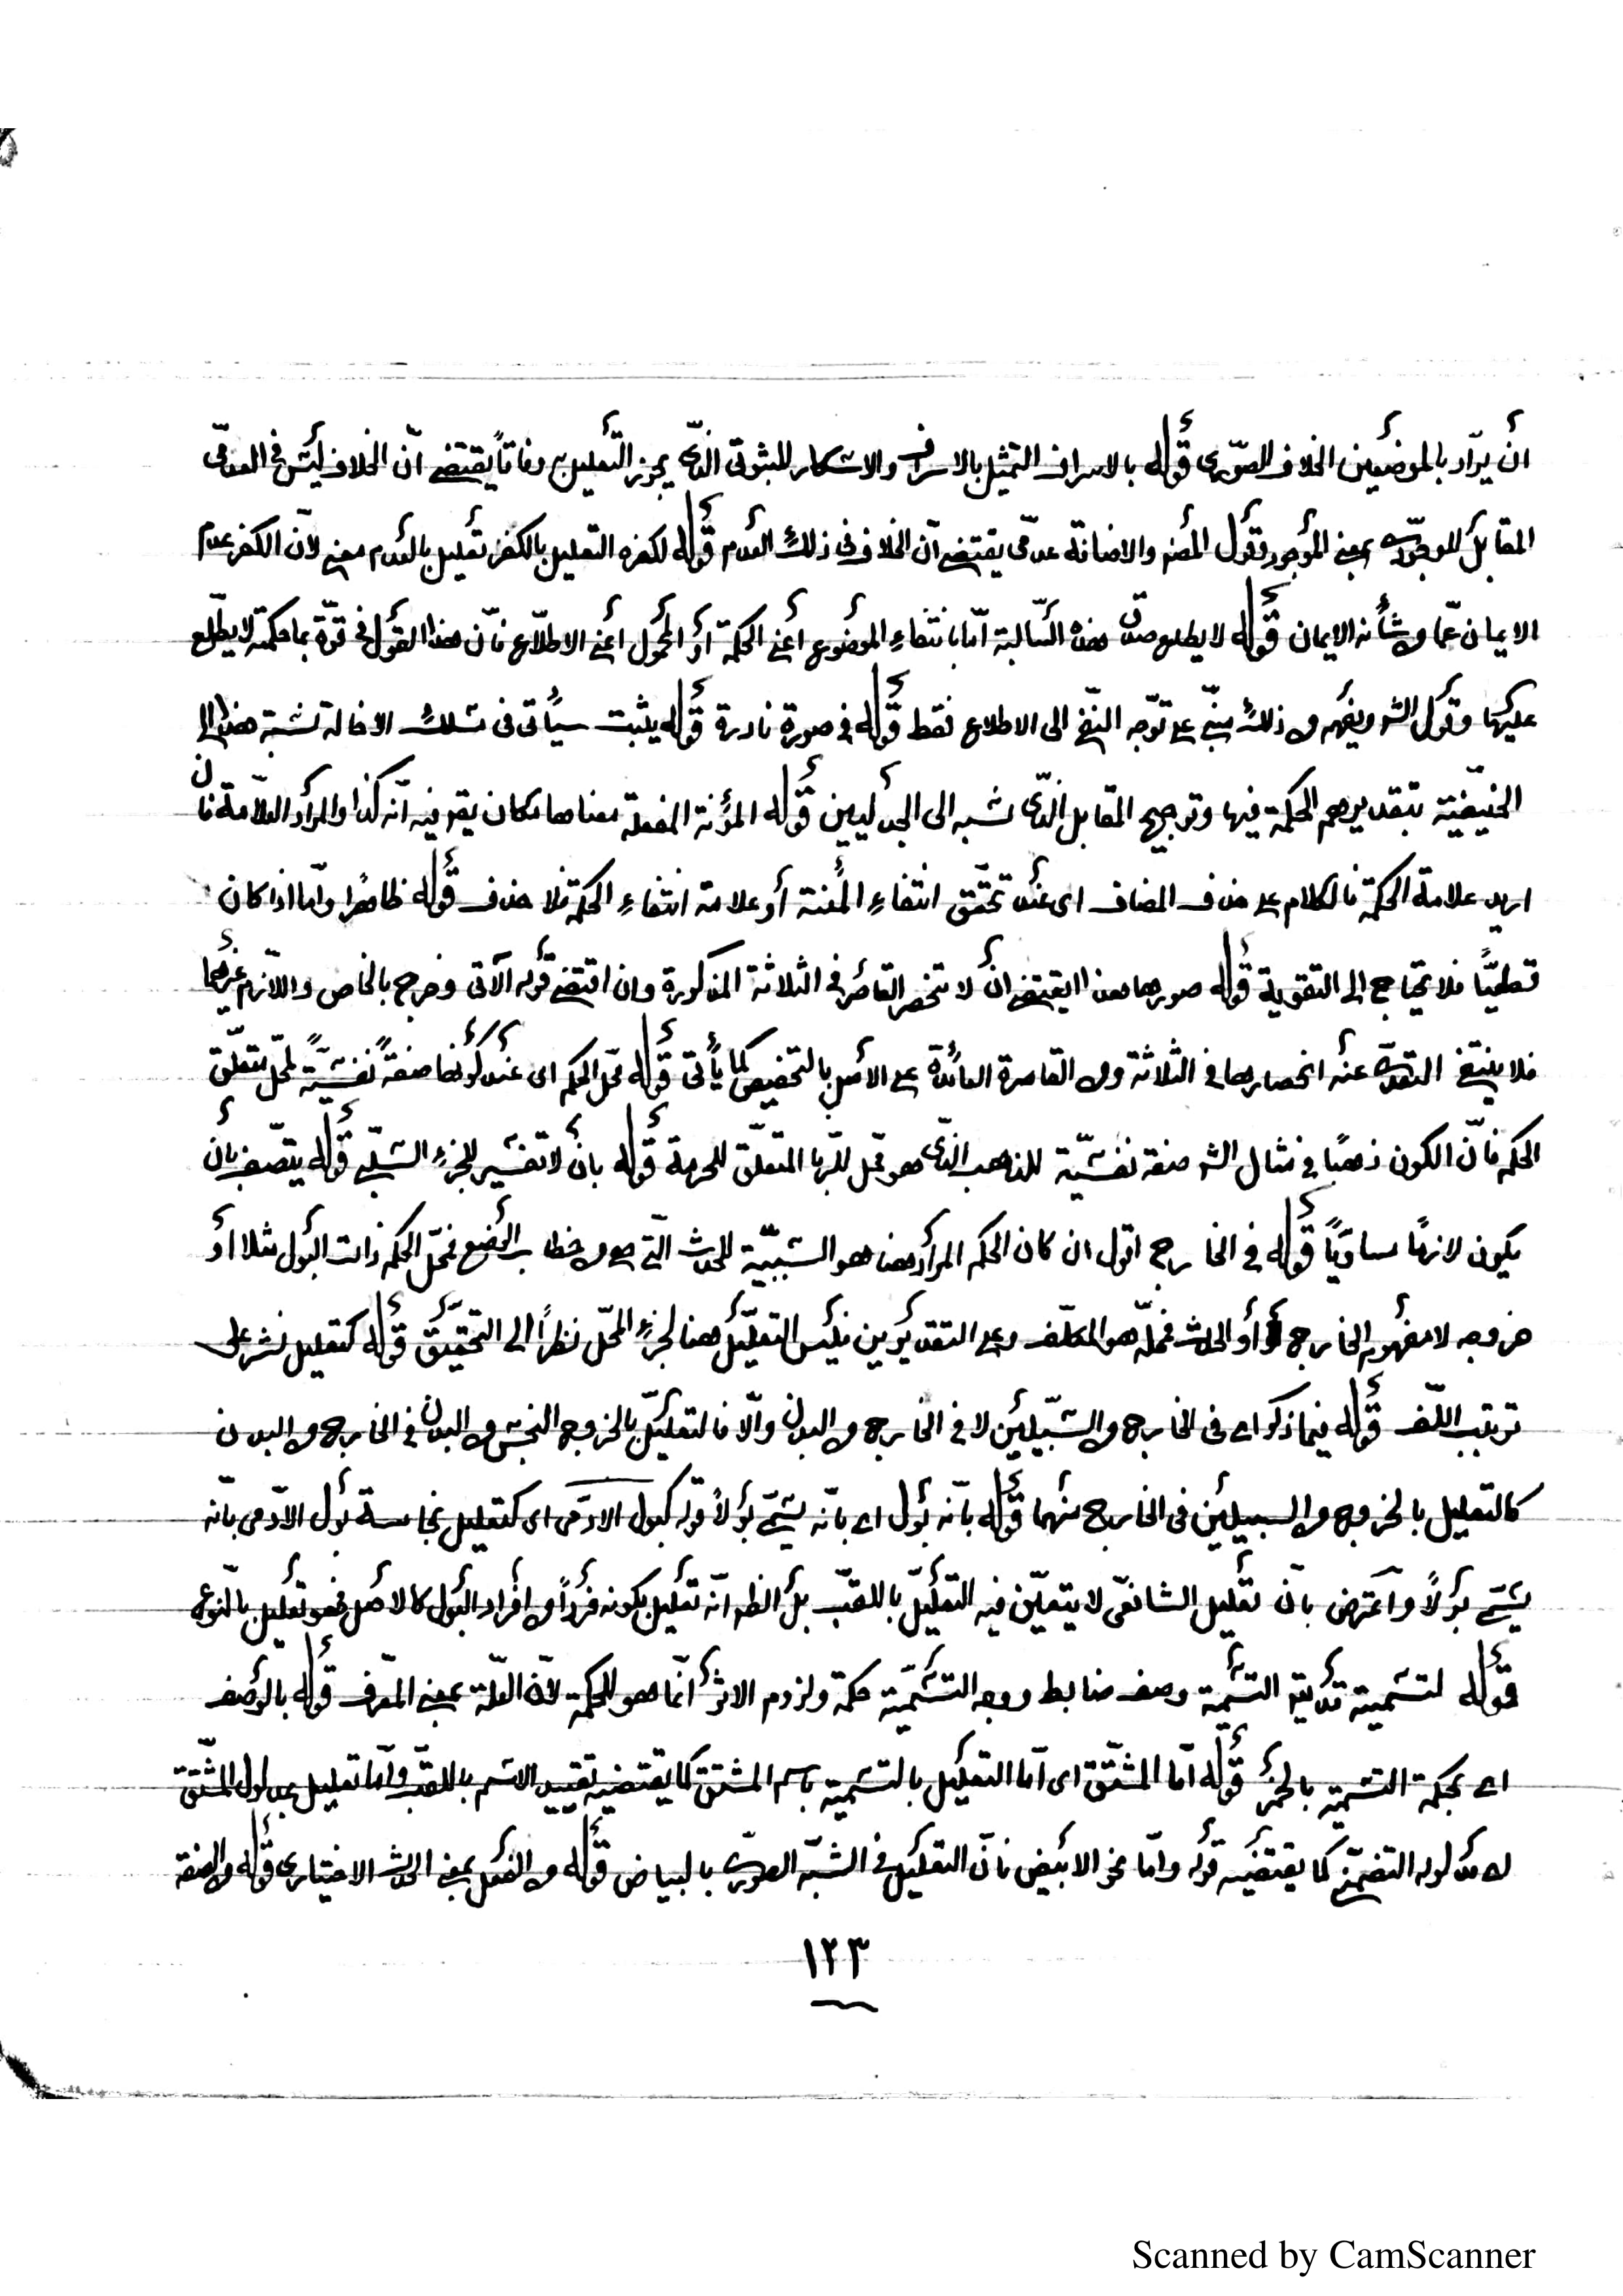 أن يراد بالموضعين الخلاف الصوري قوله بالاسراف التمثيل بالاسراف والاسكار للثبوتي الذي يجوز التعليل به وفاقاً يقتضي أن الخلاف ليس في العدمي
المقابل للوجودي بمعنى الموجود وقول المصنف والاضافة عدمي يقتضي أن الخلاف في ذلك العدم قوله لكفره التعليل بالكفر تعليل بالعدم معنى لأن الكفر عدم
الايمان عما من شأنه الايمان قوله لا يطلع صدق هذه السالبة اما بانتفاء الموضوع أعني الحكمة أو المحمول أعني الاطلاع فان هذا القول في قوة بما حكمته لا يطلع
عليها وقول الشر ويفهم من ذلك مبني على توجه النفي الى الاطلاع فقط قوله في صورة نادرة قوله يثبت سيأتي في تلك الاحالة نسبة هذا الى
الحنيفية بتقدير عدم الحكمة فيها وترجيح المقابل الذي نسبه الى الجدليين قوله المؤنة المفعلة معناها مكان يقع فيه أنه كذا والمراد العلامة فان
اريد علامة الحكمة فالكلام على حذف المضاف اى عند تحقق انتفاء المئنة أو علامة انتفاء الحكمة فلا حذف قوله ظاهرا وأما اذا كان
قطعيًا فلا يحتاج الى التقوية قوله صورها هذا يقتضي أن لا تنحصر القاصرة في الثلاثة المذكورة وان اقتضى قوله الآتي وخرج بالخاص واللازم غيرهما
فلا ينتفي التعدي عنه انحصارها في الثلاثة ومن القاصرة العائدة على الأصل بالتخصيص كما يأتي قوله محل الحكم اى عند كونها صفةً نفسيّةً لمحل يتعلق
الحكم فان الكون ذهبًا في مثال الشر صفة نفسية للذهب الذي هو محل للربا المتعلق للحرمة قوله بأن لا تفسير للجزء السلبي قوله يتصف بأن
يكون لازمًا مساويًا قوله في الخارج اقول ان كان الحكم المراد هنا هو السببية للحدث التي هي من خطاب الوضع فمحل الحكم ذات البول مثلا أو
خروجه لا مفهوم الخارج أو الحدث فمحله هو المكلف وعلى التقديرين فليس التعليل هنا لجزء المحل نظرا الى التحقيق قوله كتعليل نشر على
ترتيب اللف قوله فيما ذكر اى في الخارج من السبيلين لا في الخارج من البدن وإلا فالتعليل بالخروج النجس من البدن في الخارج من البدن
كالتعليل بالخروج من السبيلين في الخارج منهما قوله بأنه بول اى بأنه يسمى بولاً قوله كبول الآدمي اى كتعليل نجاسة بول الآدمي بأنه
يسمى بولاً واعترض بأن تعليل الشافعي لا يتعين فيه التعليل باللقب بل الظ أنه تعليل بكونه فرداً من افراد البول كالاصل فهو تعليل بالنوع
قوله لتسميته تعدية التسمية وصف ضابط ووجه التسمية حكمة ولزوم الاثر انما هو للحكمة لأن العلة بمعنى المعرف قوله بالوصف
اى بحكمة التسمية بالخمر قوله أما المشتق اى أما التعليل بالتسمية باسم المشتق كما يقتضيه تقييد الاسم باللقب وأما تعليل بمدلول المشتق
لا مدلوله التضمني كما يقتضيه قوله وأما نحو الابيض فان التعليل في الشبه الصوري بالبياض قوله من الفعل بمعنى الحدث الاختياري قوله من الصفة
١٢٣
Scanned by CamScanner